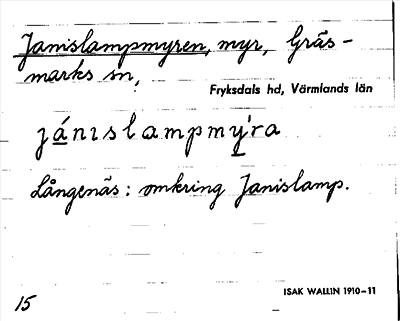 Janislampmyren, myr, Gräs-
marks sn,
Fryksdals hd, Värmlands län
jánislampmy̱ra
Långenäs: omkring Janislamp.
ISAK WALLIN 1910-11
15